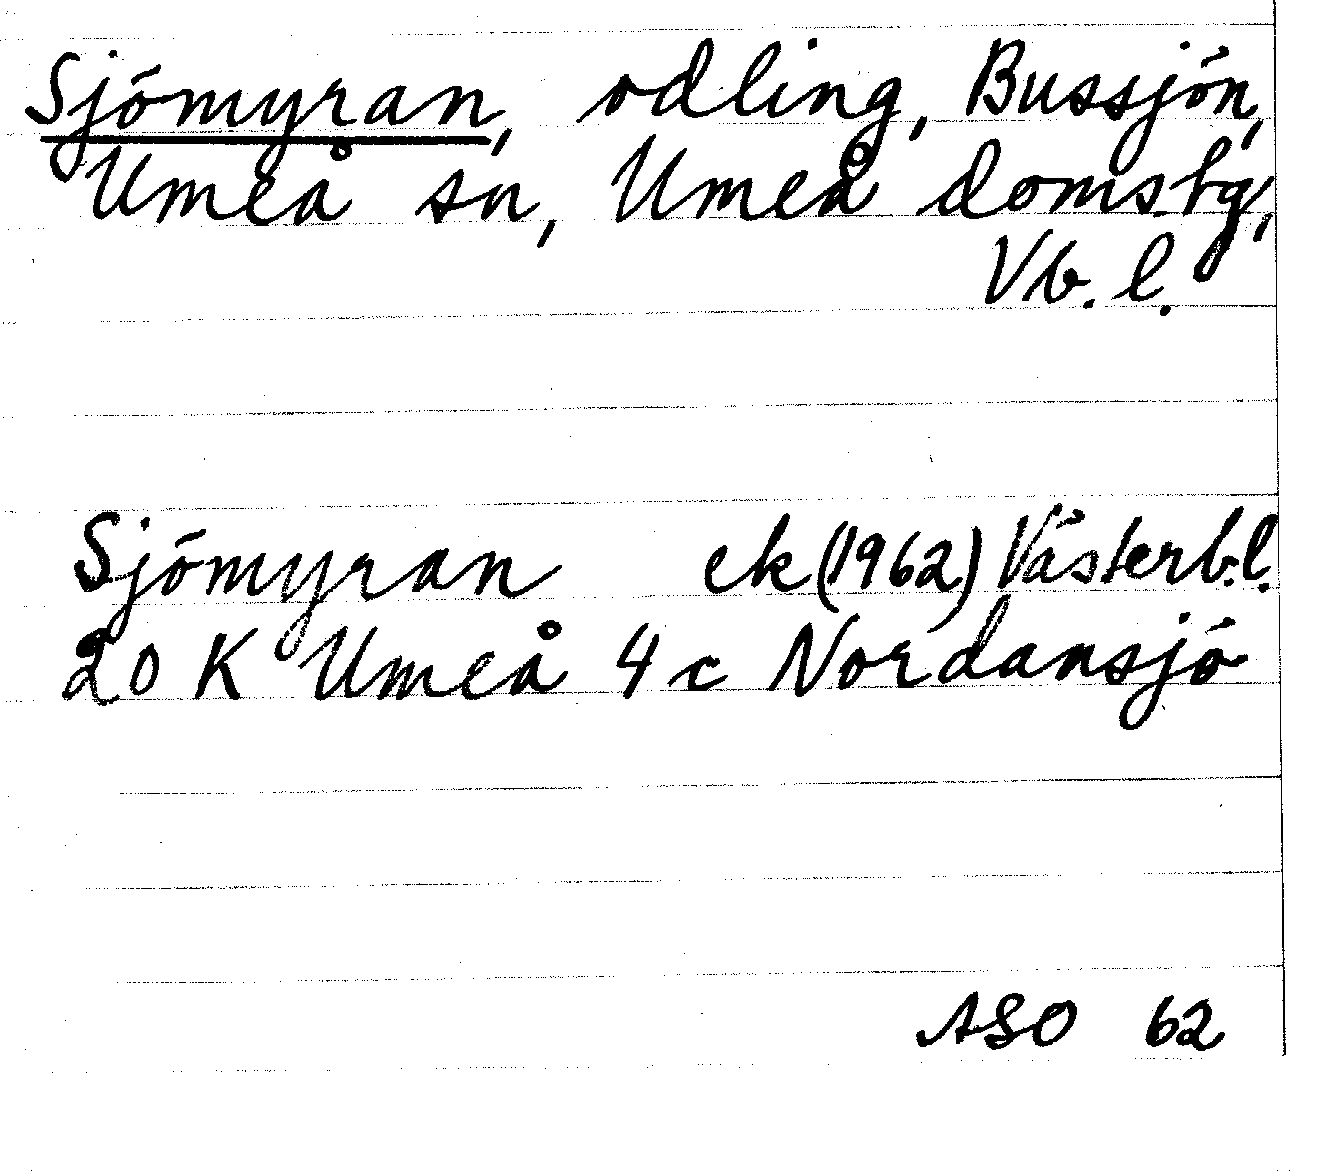 Sjömyran, odling, Bussjön,
Umeå sn, Umeå domsbg,
Vb. l.
Sjömyran ek (1962) Västerb.l.
20 K Umeå 4c Nordansjö
ASO 62